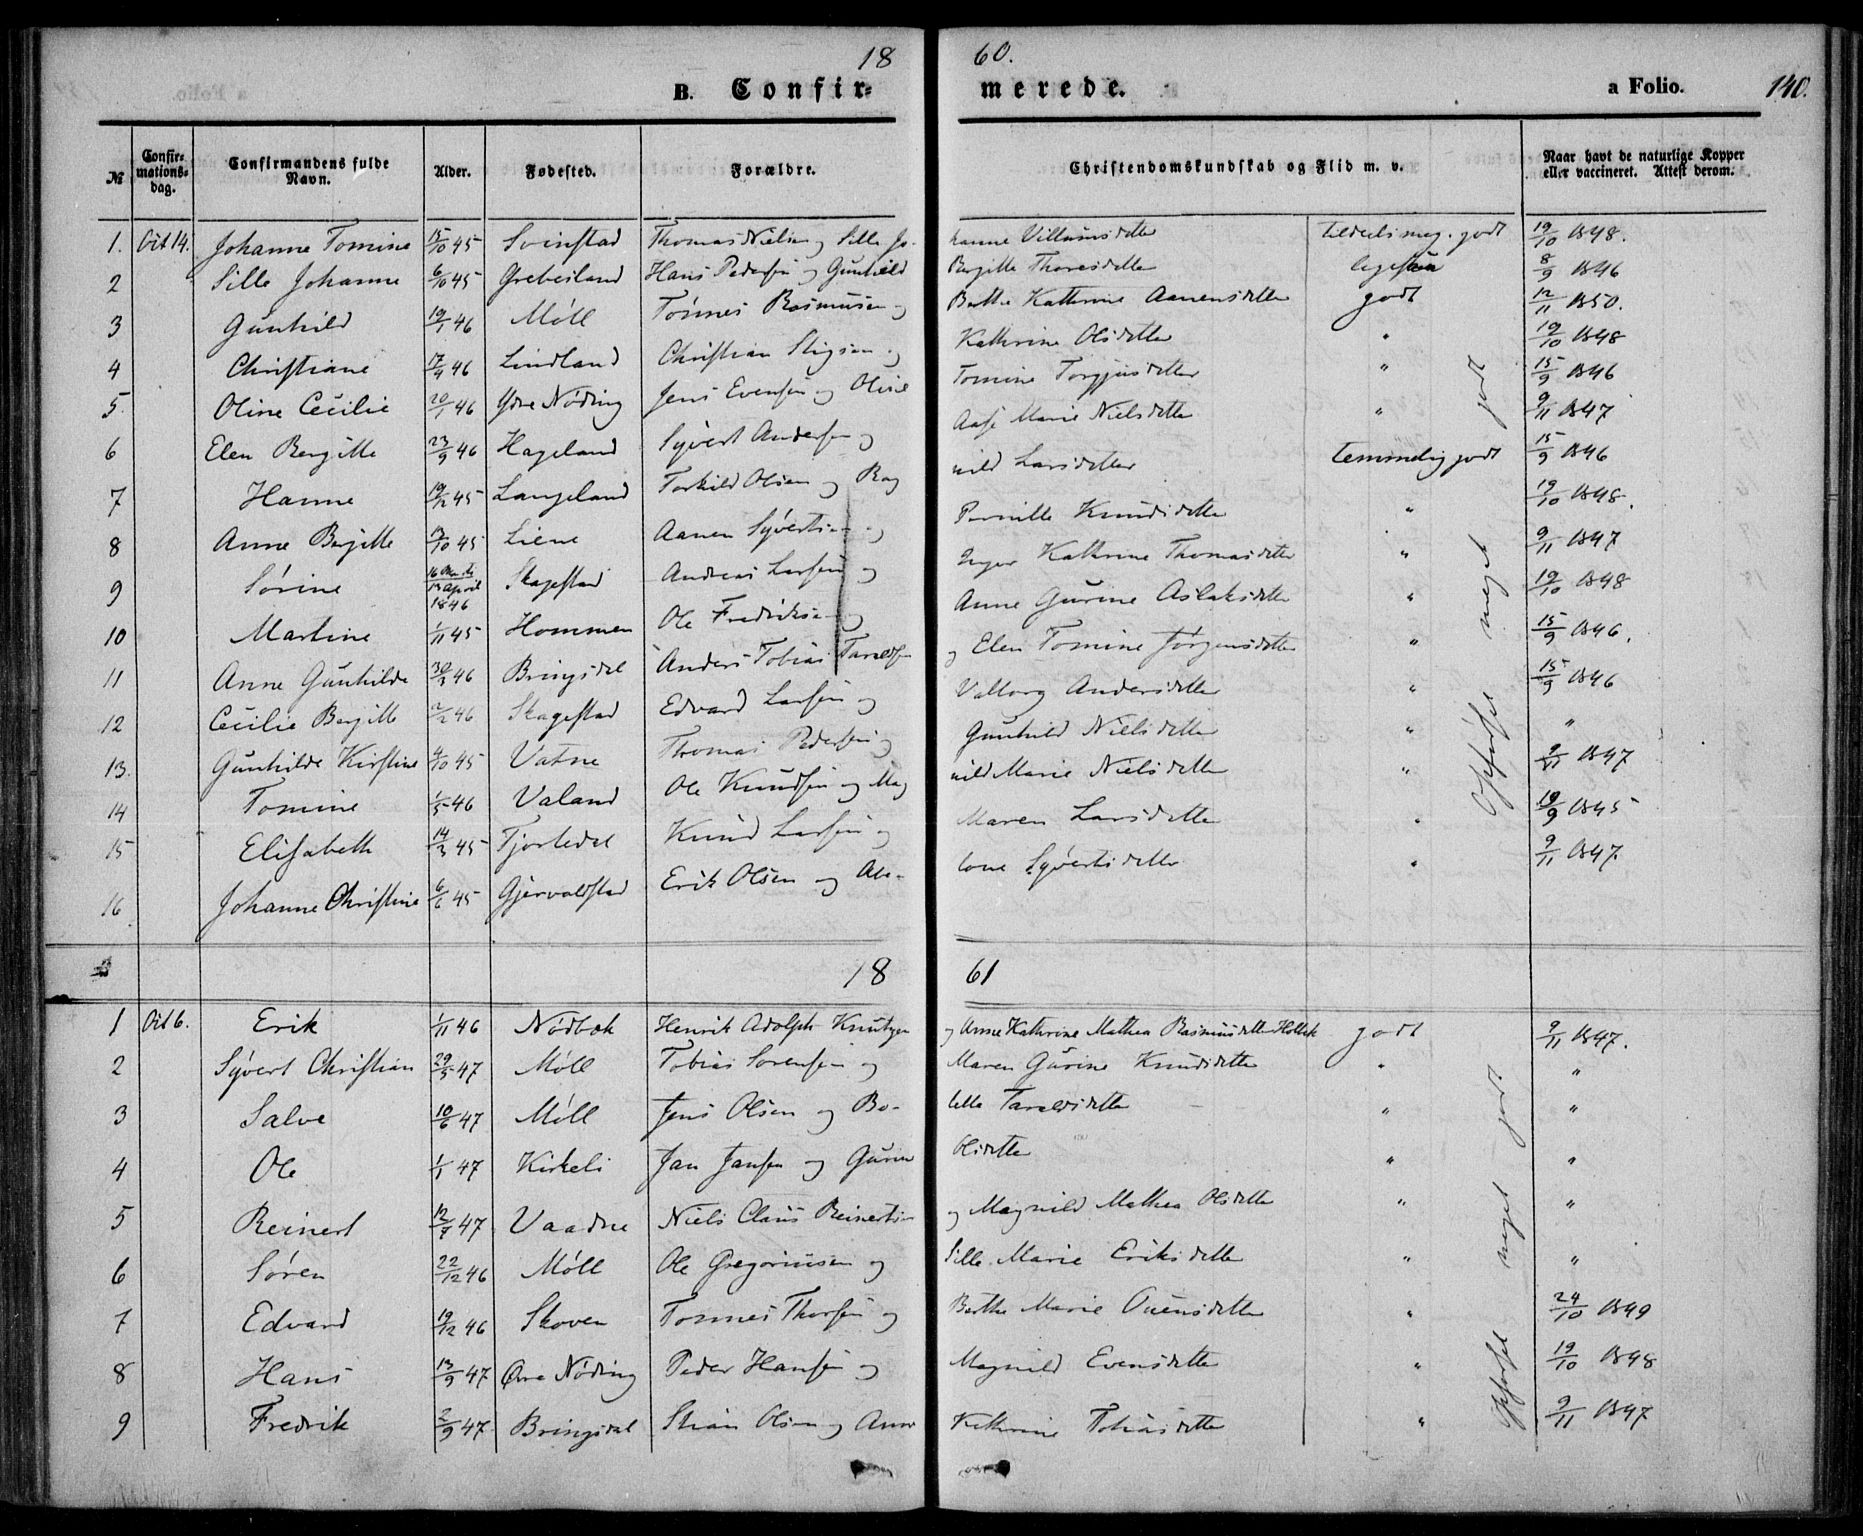 18 60.
B. Confir= merede. a Folio. 140.
№ Confir=mations=dag. Confirmandens fulde Navn. Alder. Fødested. Forældre. Christendomskundskab og Flid m. v. Naar havt de naturlige Kopper eller vaccineret. Attest derom.
1. Oct 14. Johanne Tomine 15/10 45 Svinstad Thomas Nielsen og Sille Johanne Villumsdatter tildeels meg. godt 19/10 1848.
2 Sille Johanne 6/10 45 Grebesland Hans Pedersen og Gunhild Bergitte Thoresdatter ligesaa 8/9 1846
3 Gunhild 19/1 46 Möll Tönnes Rasmusen og Berthe Kathrine Aanensdatter godt 12/11 1850.
4 Christiane 17/4 46 Lindland Christian Stigsen og Kathrine Olsdatter " 19/10 1848
5. Oline Cecilie 20/1 46 Ydre Nøding Jens Evensen og Oline Tomine Torgjusdatter " 15/9 1846
6 Elen Bergitte 23/9 46 Hageland Syvert Andersen og Aase Marie Nielsdatter " 9/11 1847
7 Hanne 19/12 45 Langeland Torkild Olsen og Ragnild Larsdatter temmelig godt 15/9 1846
8 Anne Bergitte /10 45 Liene Aanen Syvertsen og Pernille Knudsdatter " 19/10 1848.
9 Sørine 13 April 1846 Skagestad Andreas Larsen og Inger Kathrine Thomasdatter " 9/11 1847
10 Martine 1/11 45 Hommen Ole Fredriksen og Anne Gurine Aslaksdatter " 19/10 1848
11 Anne Gunhilde 30/3 46 Bringsdal Anders Tobias Taraldsen og Elen Tomine Jörgensdatter " 15/9 1846.
12 Cecilie Bergitte 2/2 46 Skagestad Edvard Larsen og Valborg Andersdatter " 15/9 1846
13. Gunhilde Kirstine 4/10 45 Vatne Thomas Pedersen og Gunhild Nielsdatter " "
14 Tomine 1/5 46 Valand Ole Knudsen og Magnild Marie Nielsdatter " 9/11 1847
15 Elisabeth 14/3 45 Tjortedal Knud Larsen og Maren Larsdatter " 19/9 1845
16 Johanne Christine 6/6 45 Gjervoldstad Erik Olsen og Abelone Syvertsdatter " 9/11 1847.
Opførsel meget godt
18 61
1 Oct 6. Erik 1/11 46 Nödbok Henrik Adolph Knutzen og Anne Kathrine Mathea Rasmusdatter Holbek godt 9/11 1847.
2 Syvert Christian 29/5 47 Möll Tobias Sorensen og Maren Gurine Knudsdatter " "
3 Salve 10/6 47 Möll Jens Olsen og Bolette Taraldsdatter " "
4 Ole 1/1 47 Kirkeli Jan Jansen og Gurine Olsdatter " "
5 Reinert 12/9 47 Vaadne Niels Claus Reinertsen og Magnild Mathea Olsdatter " "
6 Søren 22/12 46 Möll Ole Gregoriusen og Sille Marie Eriksdatter " "
7 Edvard 19/12 46 Skoven Tonnes Thorsen og Berthe Marie Ouensdatter " 24/10 1849
8 Hans 13/9 47 Øvre Nöding Peder Hansen og Magnild Evensdatter " 19/10 1848
9 Fredrik 2/9 47. Bringsdal Stian Olsen og Anne Kathrine Tobiasdatter " 9/11 1847
Opførsel meget godt